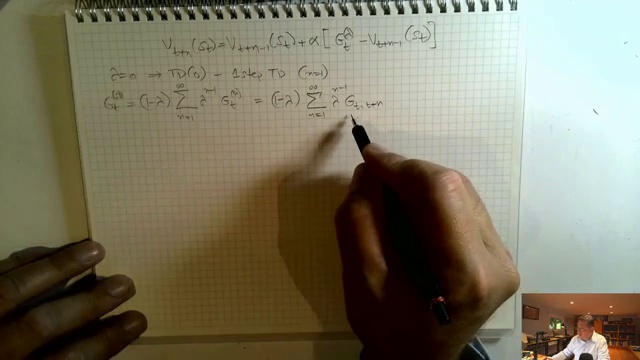 V_{t+n}(S_t) = V_{t+n-1}(S_t) + α [ G_t^{(λ)} - V_{t+n-1}(S_t) ]
λ=0 ⇒ TD(0) - 1 step TD (n=1)
G_t^{(λ)} = (1-λ) ∑_{n=1}^{∞} λ^{n-1} G_t^{(n)} = (1-λ) ∑_{n=1}^{∞} λ^{n-1} G_{t,t+n}